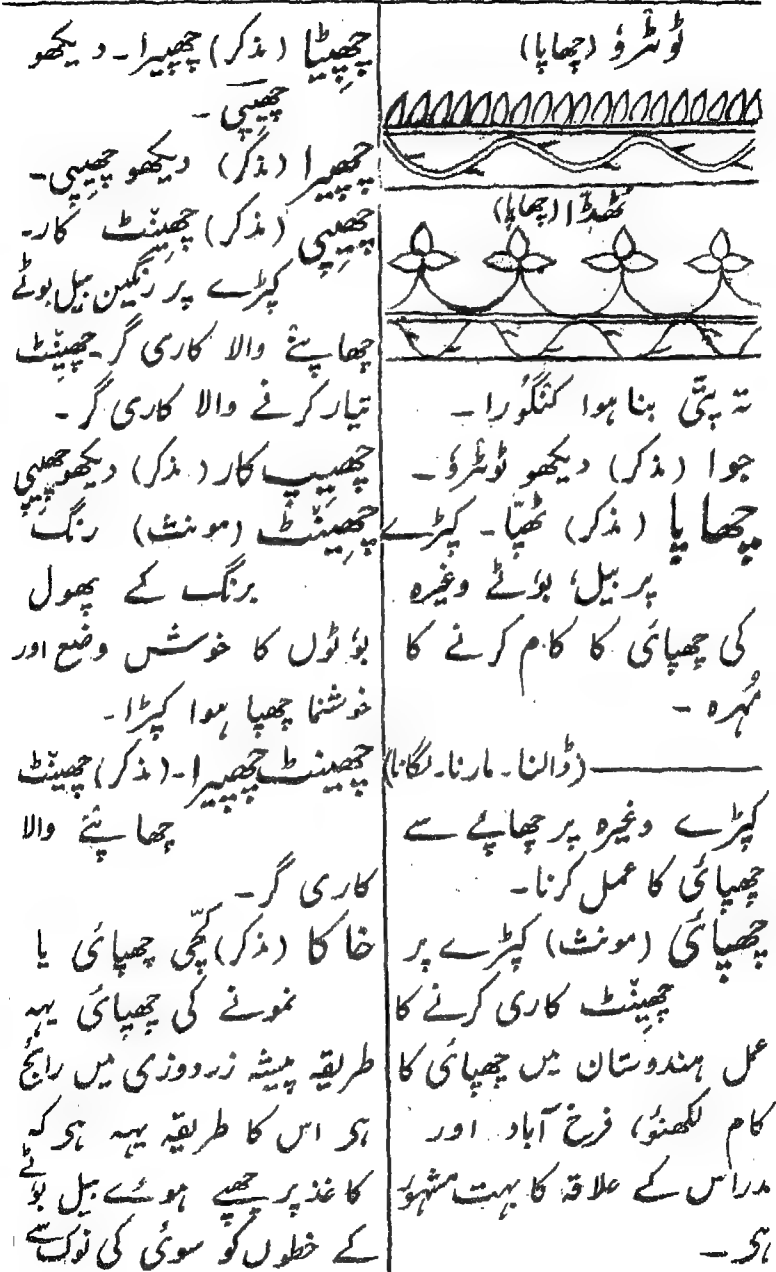 ٹونٹرو (چھاپا)
ٹھڈّا (چھاپا)
تہ پتّی بنا ہوا کنگُورا ۔
جوا (مذکر) دیکھو ٹونٹرو ۔
چھاپا (مذکر) ٹھپّا ۔ کپڑے
پر بیل، بوٹے وغیرہ
کی چھپائی کا کام کرنے کا
مُہرہ ۔
——— (ڈالنا ۔ مارنا ۔ لگانا)
کپڑے وغیرہ پر چھاپے سے
چھپائی کا عمل کرنا ۔
چھپائی (مونث) کپڑے پر
چھینٹ کاری کرنے کا
عمل ہندوستان میں چھپائی کا
کام لکھنؤ، فرخ آباد اور
مدراس کے علاقہ کا بہت مشہور
ہی ۔
چھپیٹا (مذکر) چھپیرا ۔ دیکھو
چھیپی ۔
چھپیرا (مذکر) دیکھو چھیپی ۔
چھیپی (مذکر) چھینٹ کار ۔
کپڑے پر رنگین بیل بوٹے
چھاپنے والا کاری گر ۔ چھینٹ
تیار کرنے والا کاری گر ۔
چھیپ کار (مذکر) دیکھو چھیپی
چھینٹ (مونث) رنگ
برنگ کے پھول
بوٗٹوں کا خوش وضع اور
خوشنما چھپا ہوا کپڑا ۔
چھینٹ چھپیرا ۔ (مذکر) چھینٹ
چھاپنے والا
کاری گر ۔
خاکا (مذکر) کچّی چھپائی یا
نمونے کی چھپائی یہہ
طریقہ پیشہ زردوزی میں رائج
ہی اس کا طریقہ یہہ ہی کہ
کاغذ پر چھپے ہوئے بیل بوٹے
کے خطوں کو سوئی کی نوک سے